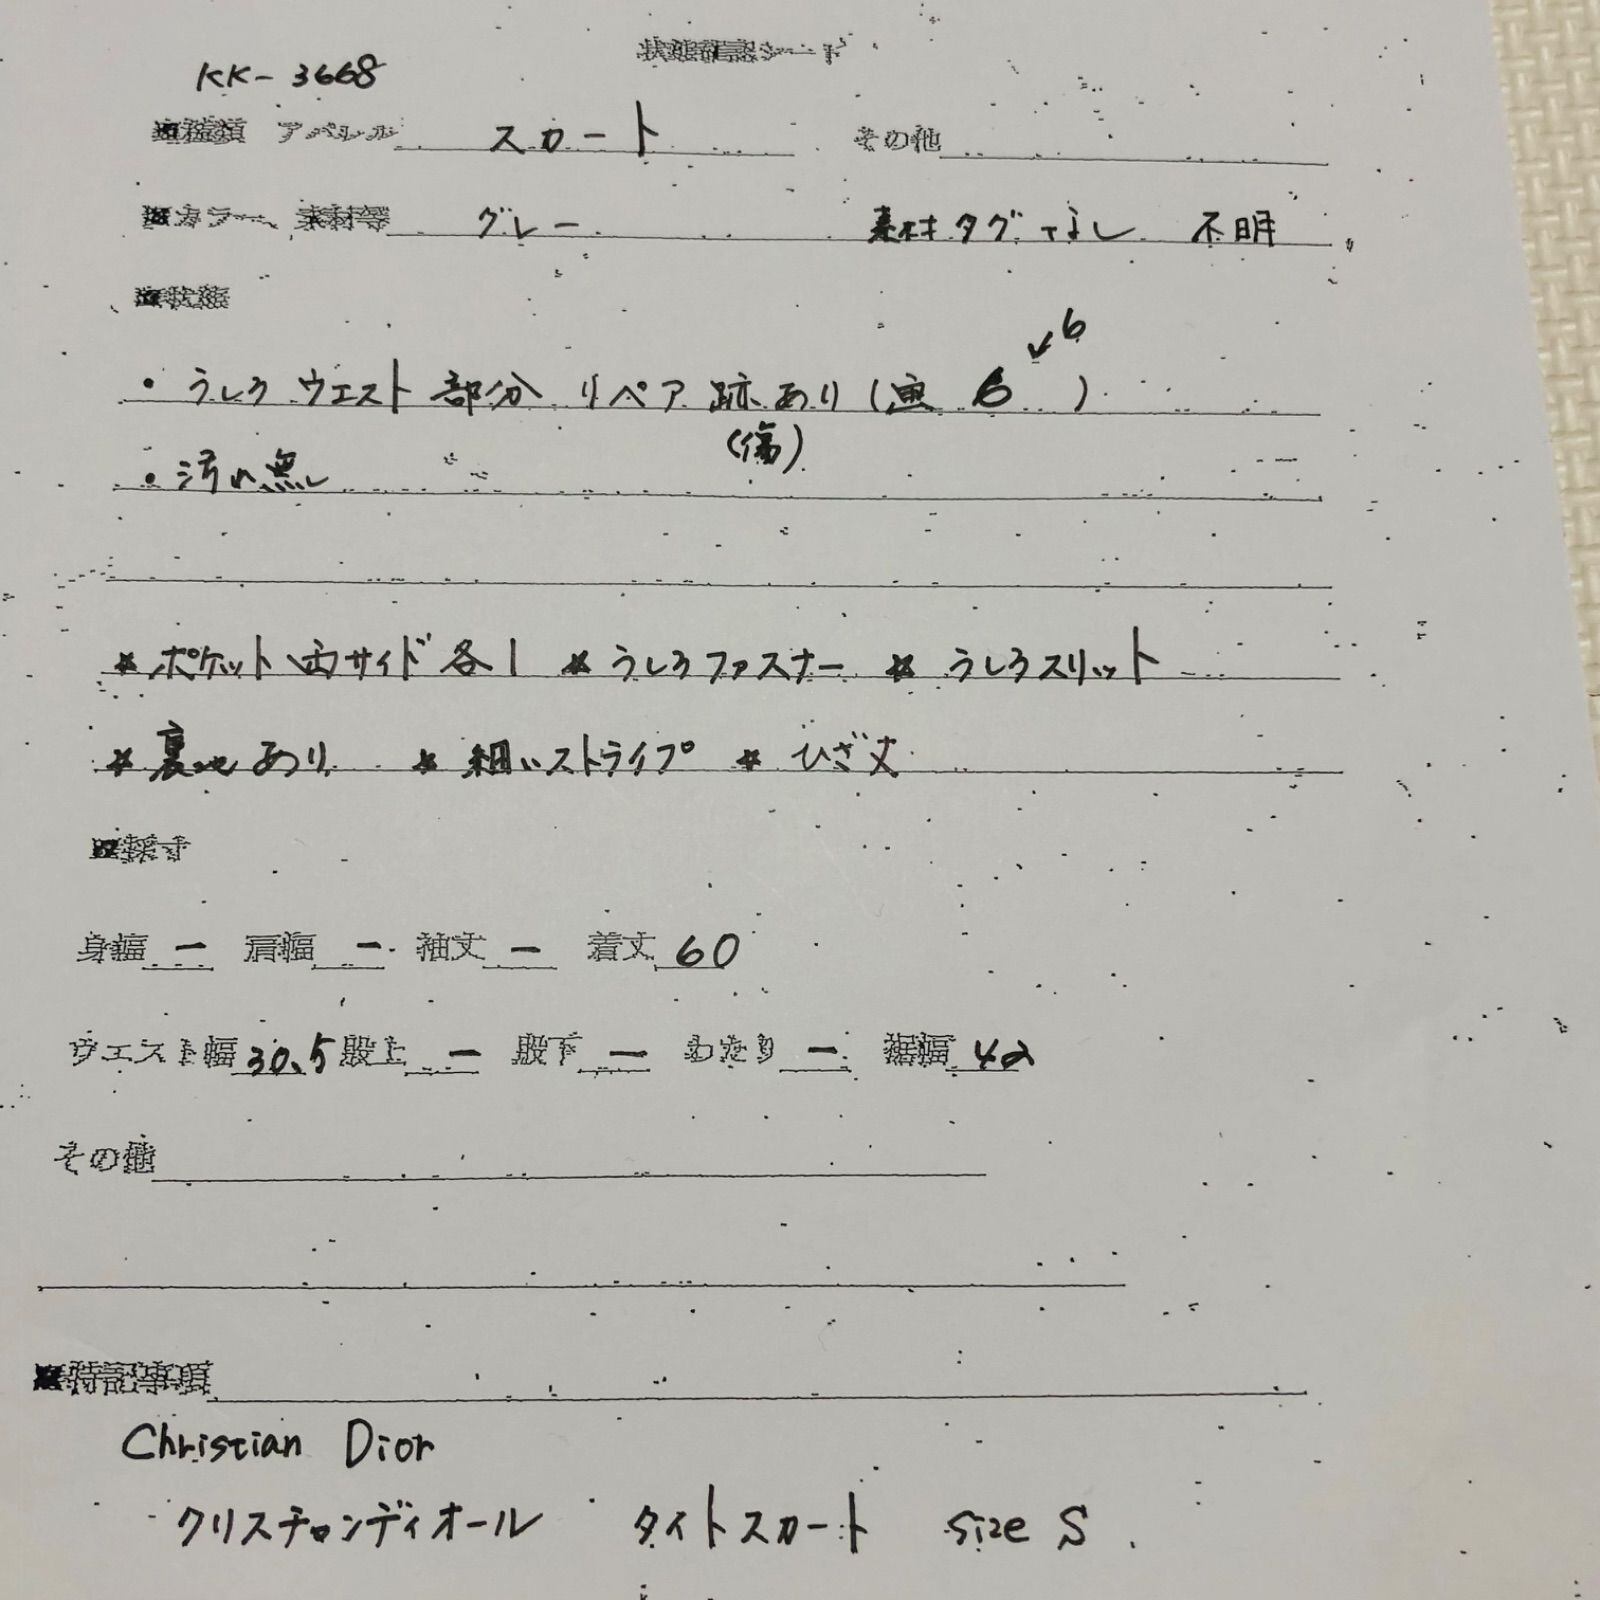 状態確認シート
KK-3668
■種類 アパレル スカート その他
■カラー、素材等 グレー 素材タグなし 不明
■状態
6
・うしろ ウエスト 部分 リペア 跡あり ( 6 )
(傷)
・汚れ無し
* ポケット 両サイド 各1 * うしろファスナー * うしろスリット
* 裏地あり * 細いストライプ * ひざ丈
■採寸
身幅 ー 肩幅 ー 袖丈 ー 着丈 60
ウエスト幅 30.5 股上 ー 股下 ー わたり ー 裾幅 42
その他
■特記事項
Christian Dior
クリスチャンディオール タイトスカート size S